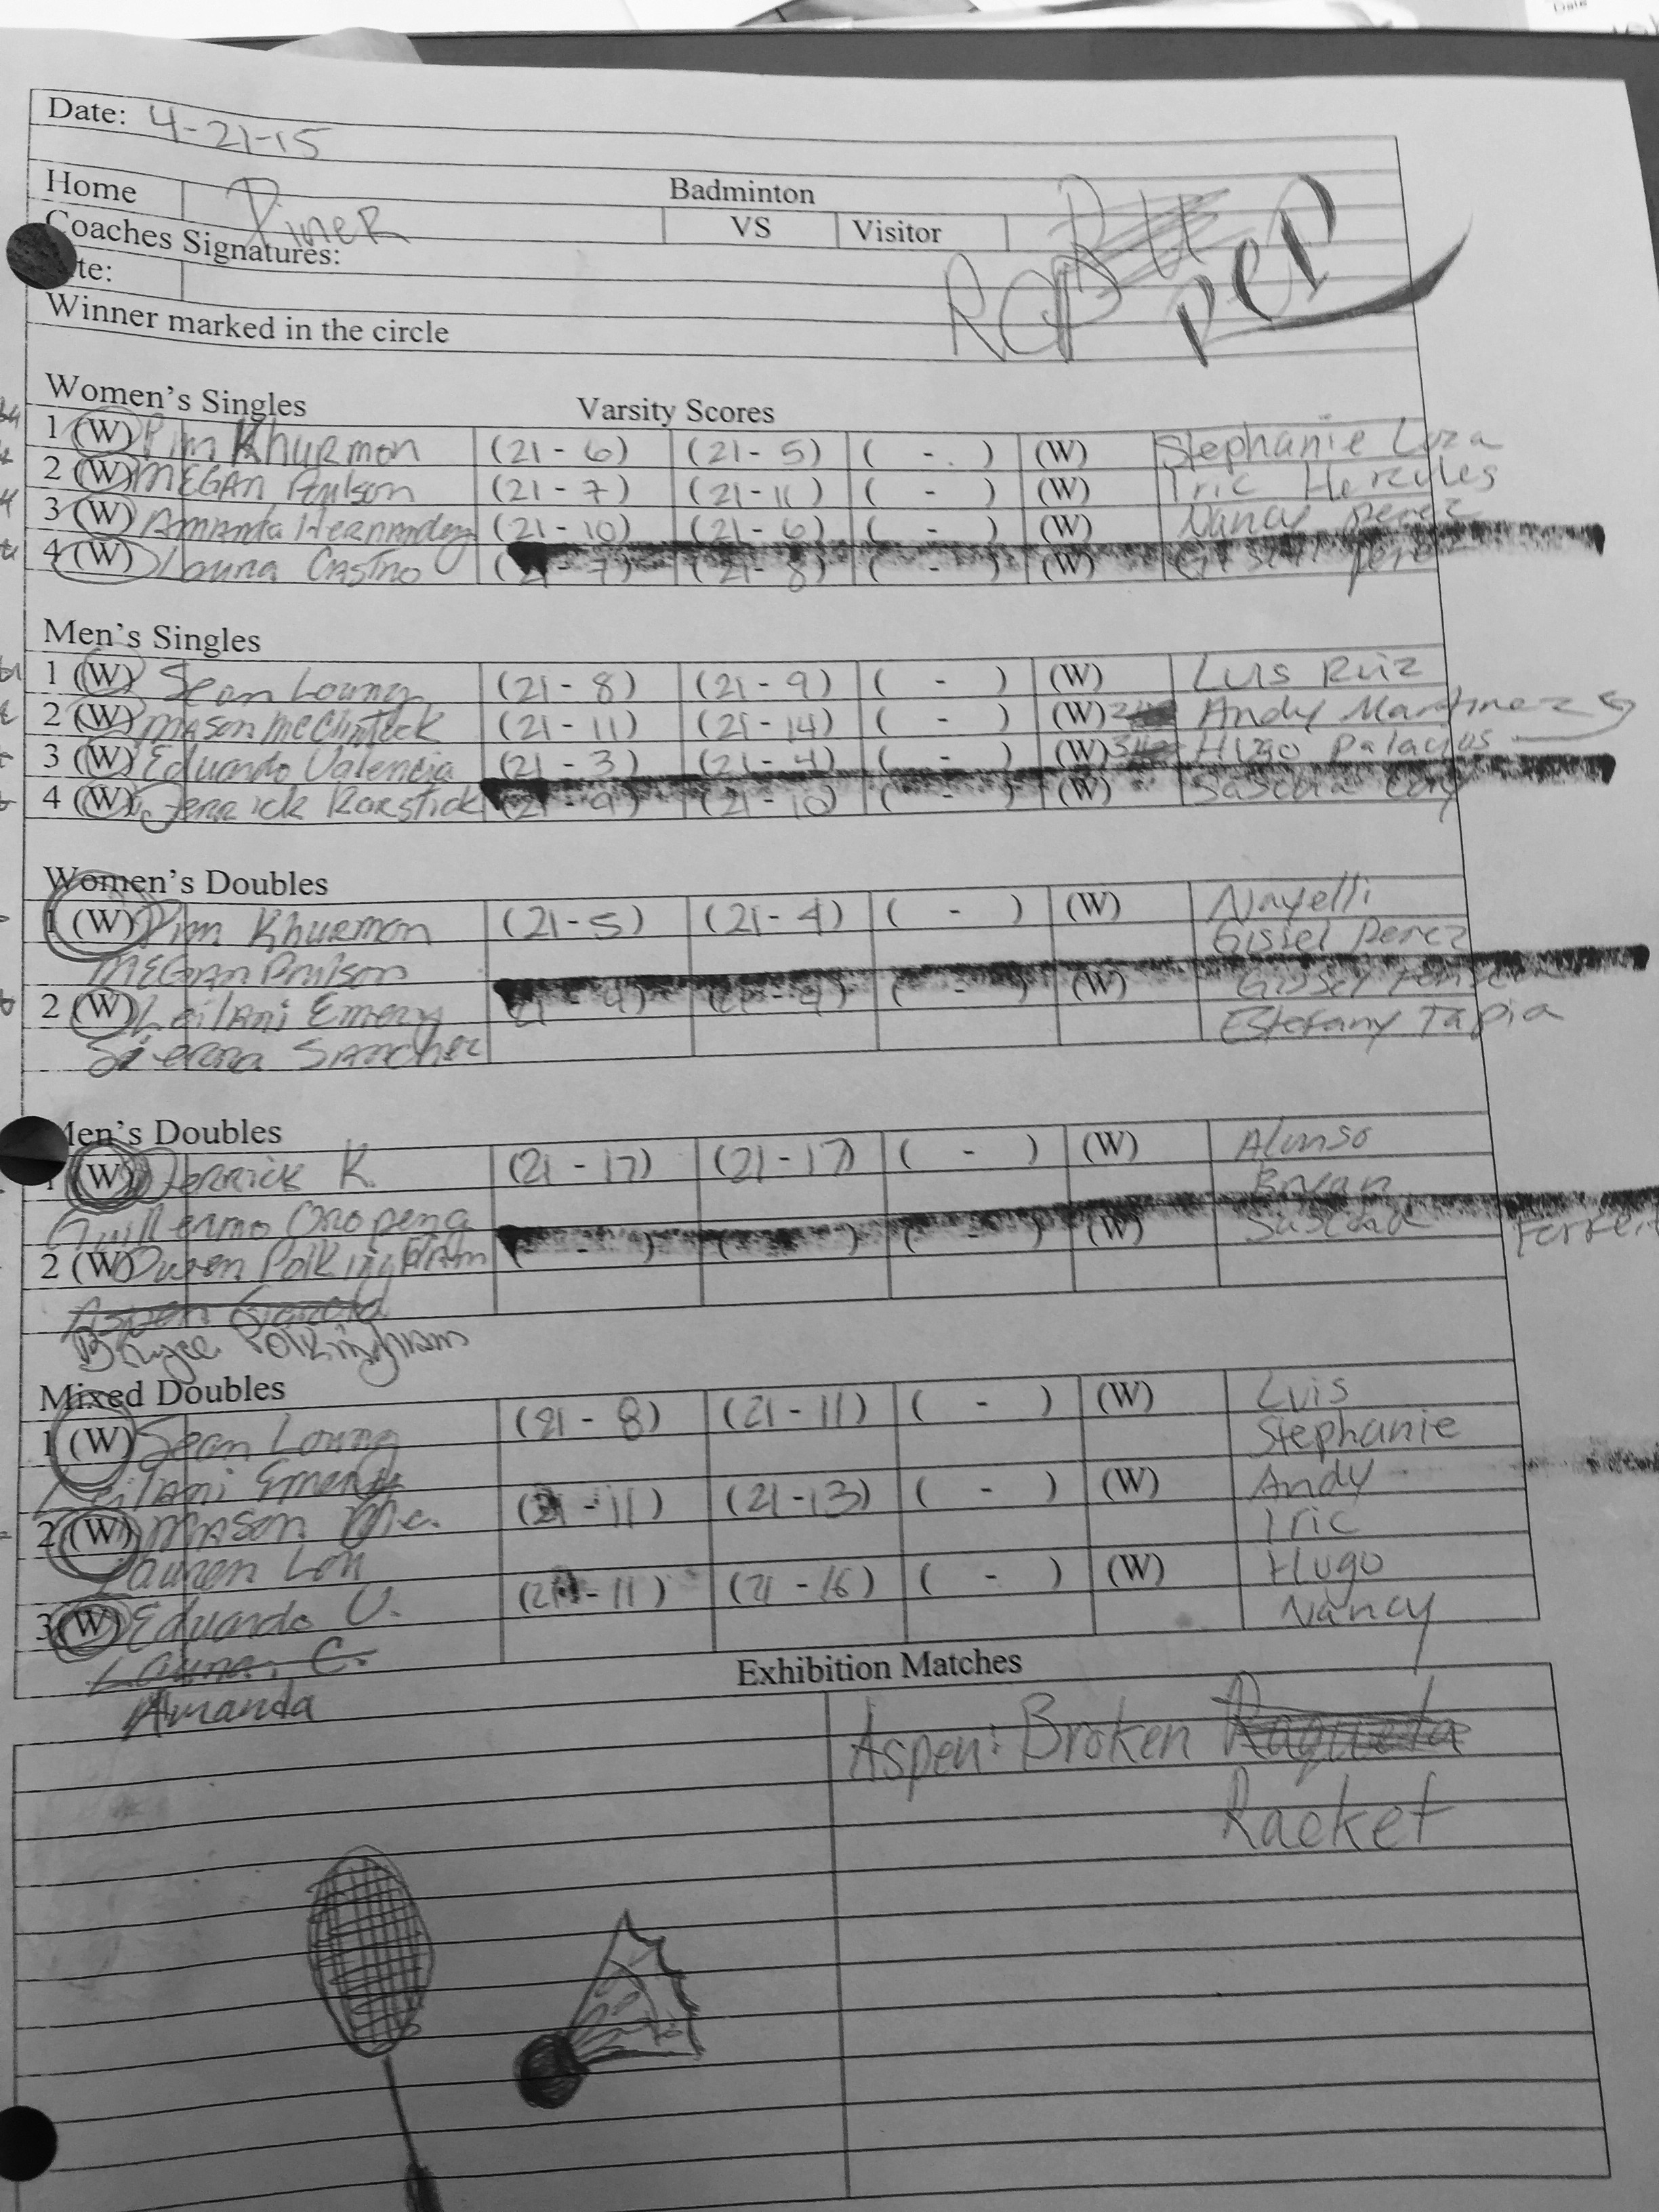 Date
Date: 4-21-15
Badminton
Home Piner VS Visitor Roseland Prep
Coaches Signatures:
Winner marked in the circle
Women's Singles Varsity Scores
1 (W) Pim Khurmon (21-6) (21-5) ( - ) (W) Stephanie Loza
2 (W) MEGAN Paulson (21-7) (21-11) ( - ) (W) Iric Hercules
3 (W) Amanda Hernandez (21-10) (21-6) ( - ) (W) Nancy Perez
4 (W) Launa Castro (21-7) (21-8) ( - ) (W) Perez
Men's Singles
1 (W) Sean Loung (21-8) (21-9) ( - ) (W) Luis Ruiz
2 (W) Mason McClintock (21-11) (21-14) ( - ) (W) Andy Martinez
3 (W) Eduardo Valencia (21-3) (21-4) ( - ) (W) Hugo Palacios
4 (W) Jerrick Karstick (21-9) (21-10) ( - ) (W)
Women's Doubles
1 (W) Pim Khurmon (21-5) (21-4) ( - ) (W) Nayelli
MEGAN Paulson Gissel Perez
2 (W) Leilani Emery (21-4) (21-4) ( - ) (W) Gissel
Sierra Sanchez Estefany Tapia
Men's Doubles
1 (W) Jerrick K. (21-17) (21-17) ( - ) (W) Alonso
Guillermo Oropeza Bryan
2 (W) Owen Polkingham ( - ) ( - ) ( - ) (W) Forfeit
Aspen
Bryce Polkingham
Mixed Doubles
1 (W) Sean Loung (21-8) (21-11) ( - ) (W) Luis
Leilani Emery Stephanie
2 (W) Mason Mc. (21-11) (21-13) ( - ) (W) Andy
Lauren Iric
3 (W) Eduardo V. (21-11) (21-16) ( - ) (W) Hugo
Launa C. Nancy
Amanda
Exhibition Matches
Aspen: Broken Raqueta
Racket